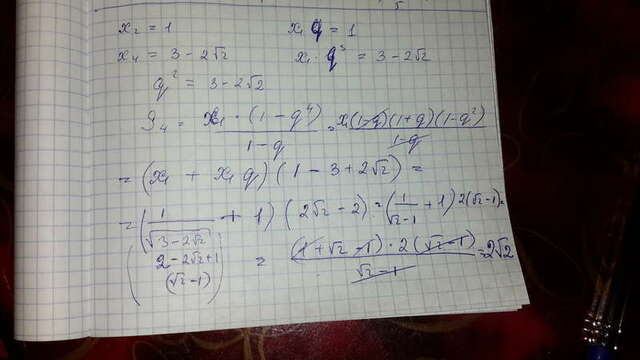 5
x₂ = 1 x₁ q = 1
x₄ = 3 - 2√2 x₁ · q³ = 3 - 2√2
q² = 3 - 2√2
S₄ = x₁ · (1 - q⁴) / 1 - q = x₁(1-q)(1+q)(1-q²) / 1-q
= (x₁ + x₁ q) (1 - 3 + 2√2) =
= (1 / √3-2√2 + 1) (2√2 - 2) = (1 / √2-1 + 1) 2(√2-1) =
(2 - 2√2+1 = (1+√2-1) · 2(√2-1) / √2-1 = 2√2
(√2-1))